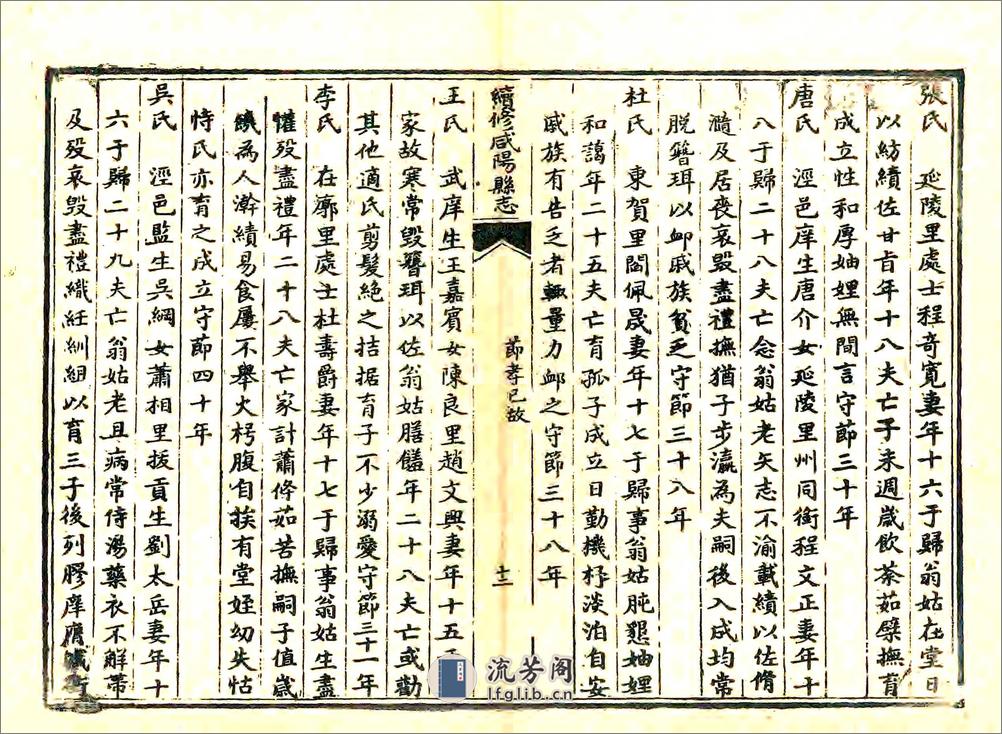 張氏　延陵里處士程奇寬妻年十六于歸翁姑在堂日
以紡績佐甘旨年十八夫亡子未週歲飲荼茹檗撫育
成立性和厚妯娌無間言守節三十年
唐氏　涇邑庠生唐介女延陵里州同銜程文正妻年十
八于歸二十八夫亡念翁姑老矢志不渝載績以佐脩
瀡及居喪哀毀盡禮撫猶子步瀛為夫嗣後入成均常
脫簪珥以卹戚族貧乏守節三十八年
杜氏　東賀里閻佩晟妻年十七于歸事翁姑肫懇妯娌
和藹年二十五夫亡育孤子成立日勤機杼淡泊自安
戚族有告乏者輙量力卹之守節三十八年
續修咸陽縣志
節孝已故
十二
王氏　武庠生王嘉賓女陳良里趙文興妻年十五
家故寒常毀簪珥以佐翁姑膳饈年二十八夫亡或勸
其他適氏剪髮絕之拮据育子不少溺愛守節三十一年
李氏　在廓里處士杜壽爵妻年十七于歸事翁姑生盡
懽歿盡禮年二十八夫亡家計蕭條茹苦撫嗣子值歲
饑為人澣績易食屢不舉火枵腹自挨有堂姪幼失怙
恃氏亦育之成立守節四十年
吳氏　涇邑監生吳綱女蕭相里拔貢生劉太岳妻年十
六于歸二十九夫亡翁姑老且病常侍湯藥衣不解帶
及歿哀毀盡禮織紝紃組以育三子後列膠庠膺
流芳阁
lfglib.cn